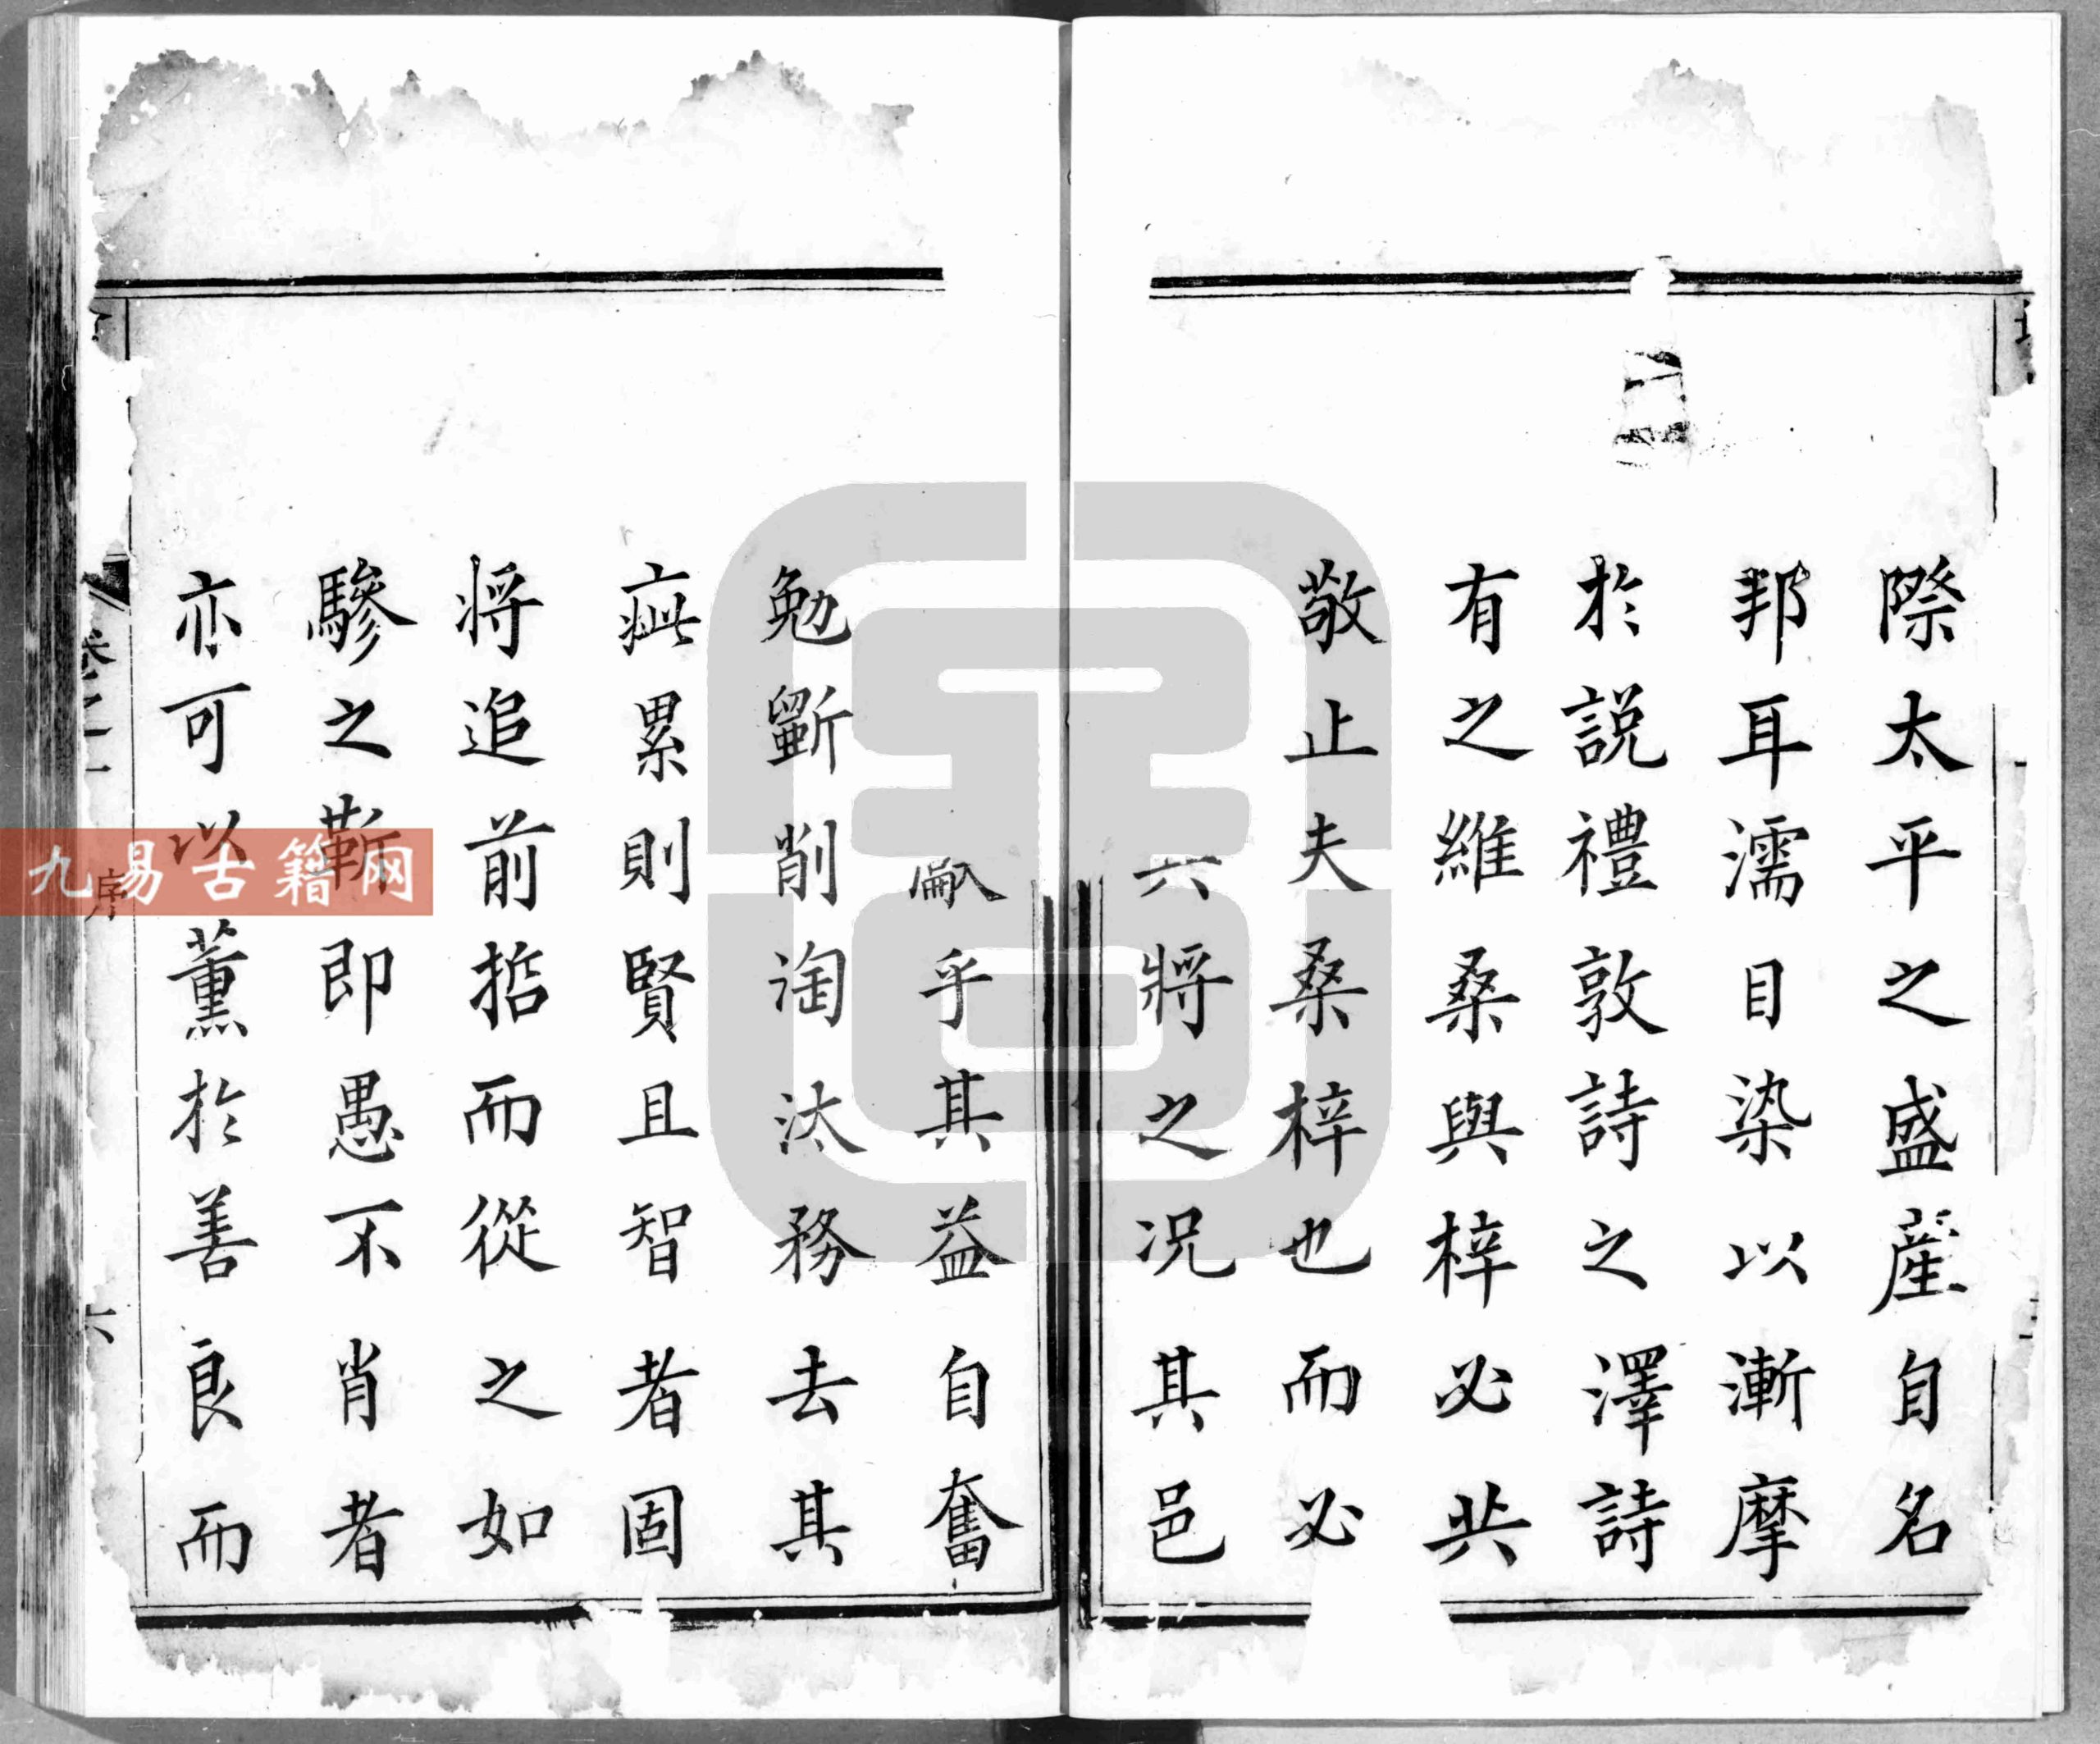 際太平之盛産自名
邦耳濡目染以漸摩
於説禮敦詩之澤詩
有之維桑與梓必共
敬止夫桑梓也而必
將之况其邑
乎其益自奮
勉斵削淘汰務去其
疵累則賢且智者固
将追前哲而從之如
驂之靳即愚不肖者
亦可以薰於善良而
卷之一
序
六
九易古籍网